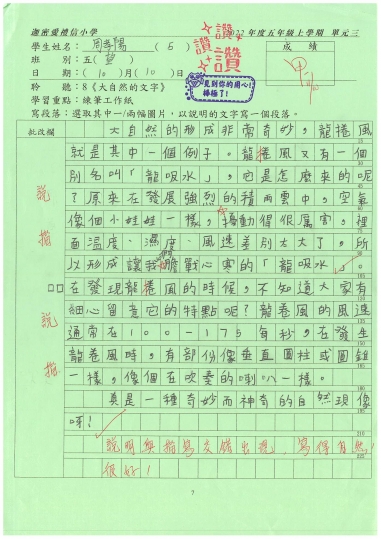 迦密愛禮信小學 2022年度五年級上學期 單元三
學生姓名： (5) 成績
班別：五( )
日期：(10)月(10)日
聆聽：8《大自然的文字》
學習重點：練筆工作紙
寫段落：選取其中一/兩幅圖片，以說明的文字寫一個段落。
讚 讚 讚
見到你的用心！
棒極了！
甲
批改欄
大自然的形成非常奇妙，龍捲風
就是其中一個例子。龍捲風又有一個
別名叫「龍吸水」，它是怎麼來的呢
？原來在發展強烈的積雨雲中，空氣
像個小娃娃一樣，擾動得很厲害，裡
面溫度、濕度、風速差別太大了，所
以形成讓我們膽戰心寒的「龍吸水」。
在發現龍捲風的時候，不知道大家有
細心留意它的特點呢？龍卷風的風速
通常在100-175每秒，在發生
龍卷風時，有部份像垂直圓柱或圓錐
一樣，像個在吹奏的喇叭一樣。
真是一種奇妙而神奇的自然現像
呀！
說
描
說
描
說明與描寫交錯出現，寫得自然！
很好！
7